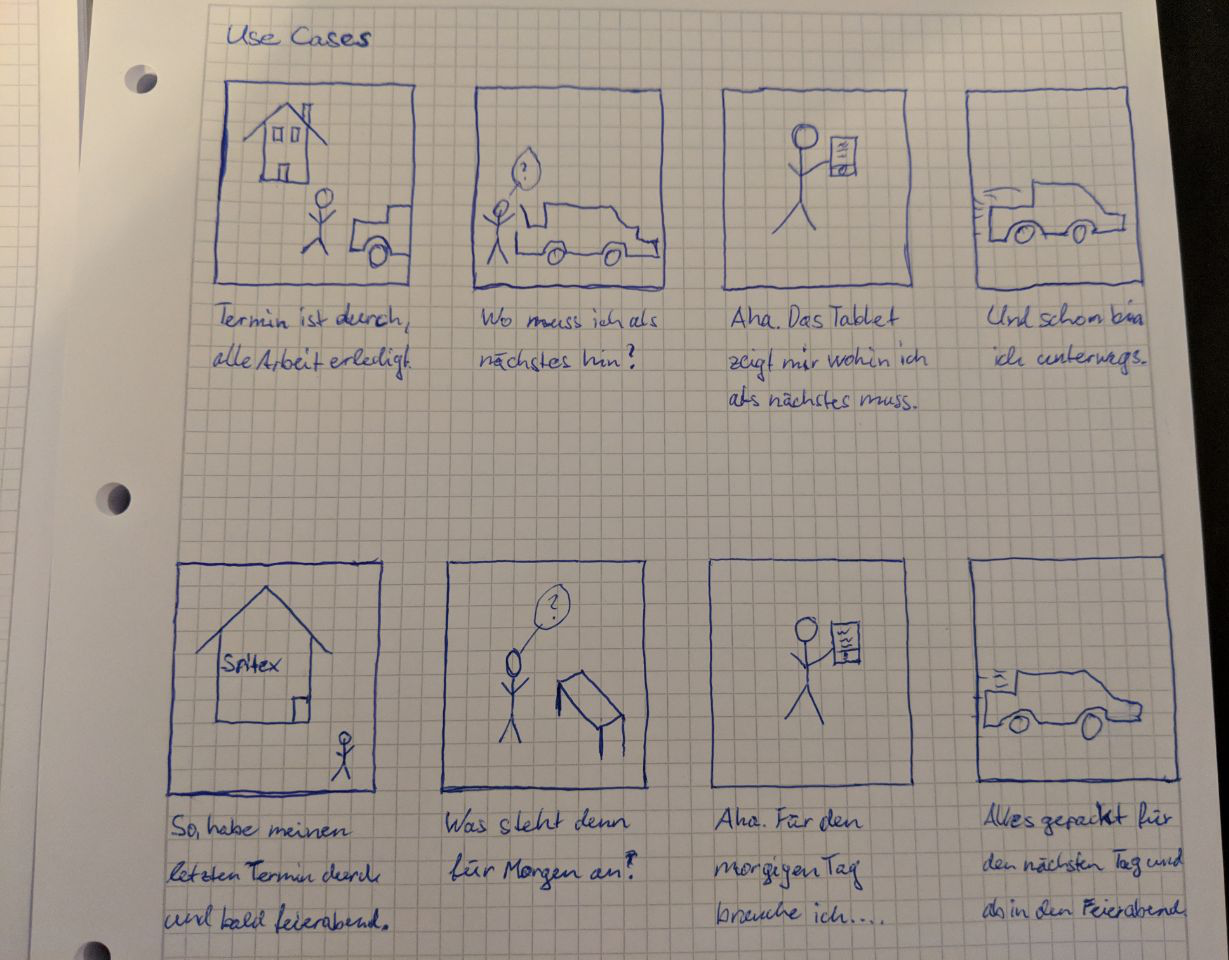 Use Cases
?
Termin ist durch,
alle Arbeit erledigt.
Wo muss ich als
nächstes hin?
Aha. Das Tablet
zeigt mir wohin ich
als nächstes muss.
Und schon bin
ich unterwegs.
Spitex
?
So, habe meinen
letzten Termin durch
und bald feierabend.
Was steht denn
für Morgen an?
Aha. Für den
morgigen Tag
brauche ich....
Alles gepackt für
den nächsten Tag und
ab in den Feierabend.